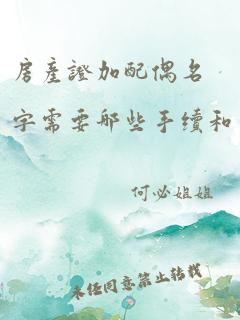 房產證加配偶名
字需要哪些手續和
何必姐姐
未经同意禁止转载